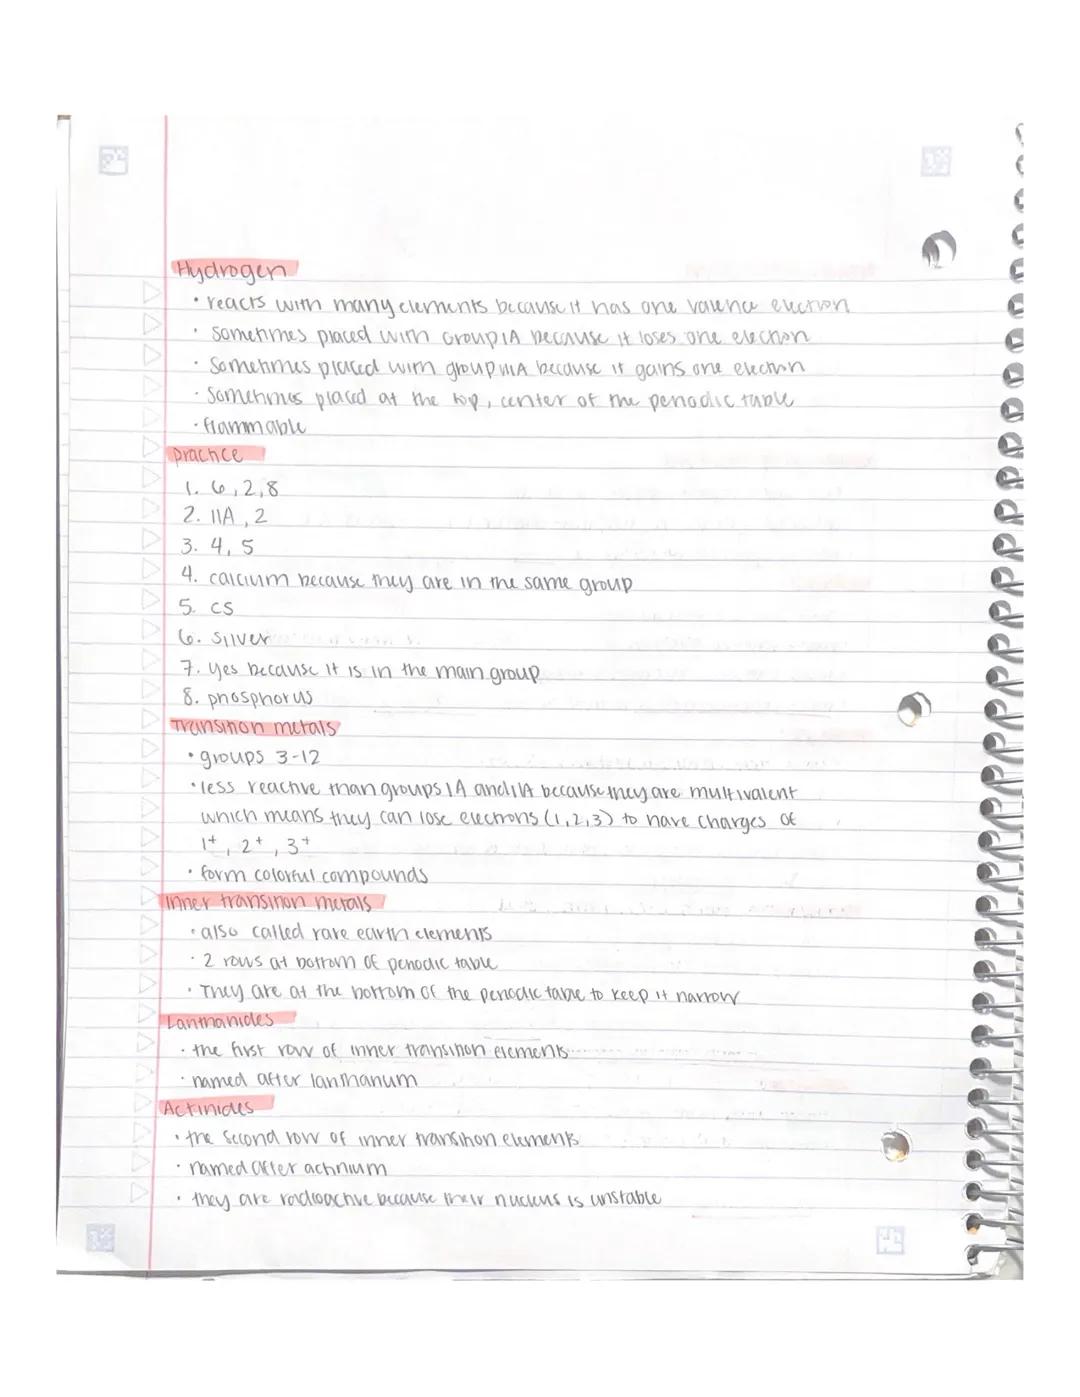 Hydrogen
• reacts with many elements because it has one valence electron
• sometimes placed with Group IA because it loses one electron
• Sometimes placed with group VIIA because it gains one electron
• Sometimes placed at the top, center of the periodic table
• flammable
practice
1. 6, 2, 8
2. IIA, 2
3. 4, 5
4. calcium because they are in the same group
5. Cs
6. Silver
7. yes because it is in the main group
8. phosphorus
Transition metals
• groups 3-12
• less reactive than groups IA and IIA because they are multivalent
which means they can lose electrons (1,2,3) to have charges of
1+, 2+, 3+
• form colorful compounds
Inner transition metals
• also called rare earth elements
• 2 rows at bottom of periodic table
• They are at the bottom of the periodic table to keep it narrow
Lanthanides
• the first row of inner transition elements
• named after lanthanum
Actinides
• the second row of inner transition elements
• named after actinium
• they are radioactive because their nucleus is unstable